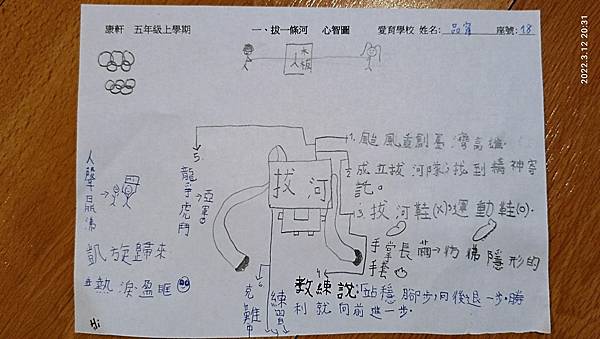 康軒　五年級上學期　一、拔一條河　心智圖　愛育學校 姓名: 品睿　座號: 18
木板
人
1. 颱風重創臺灣高雄.
2 成立拔河隊,找到精神寄
託。
3. 拔河鞋(X):運動鞋(O).
手掌長繭→彷彿隱形的
手套
4
教練說:「站穩腳步,向後退一步,勝
利就向前進一步.
5.
龍爭虎鬥→亞軍
拔河
6
克難
練習
人聲鼎沸→
凱旋歸來
熱淚盈眶
Hi
2022.3.12 20:31